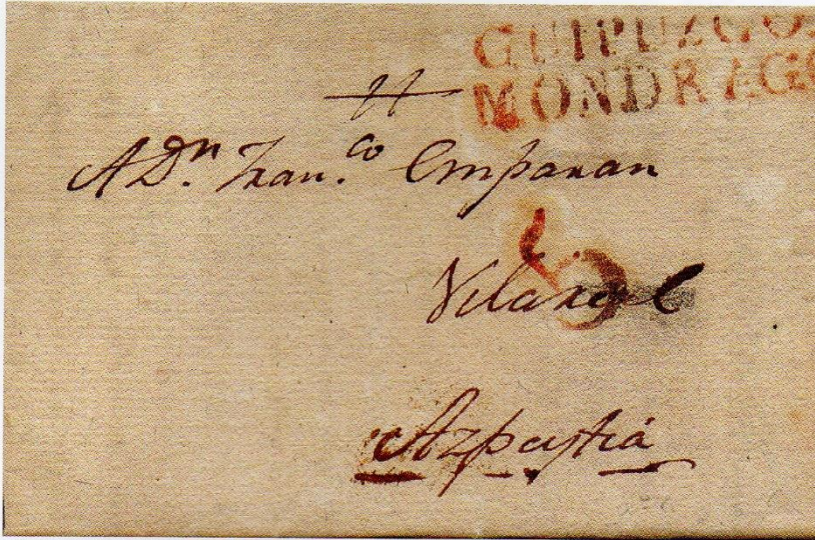 GUIPUZCO
MONDRAGO
A Dn. Fran.co Emparan
6
Azpeytia